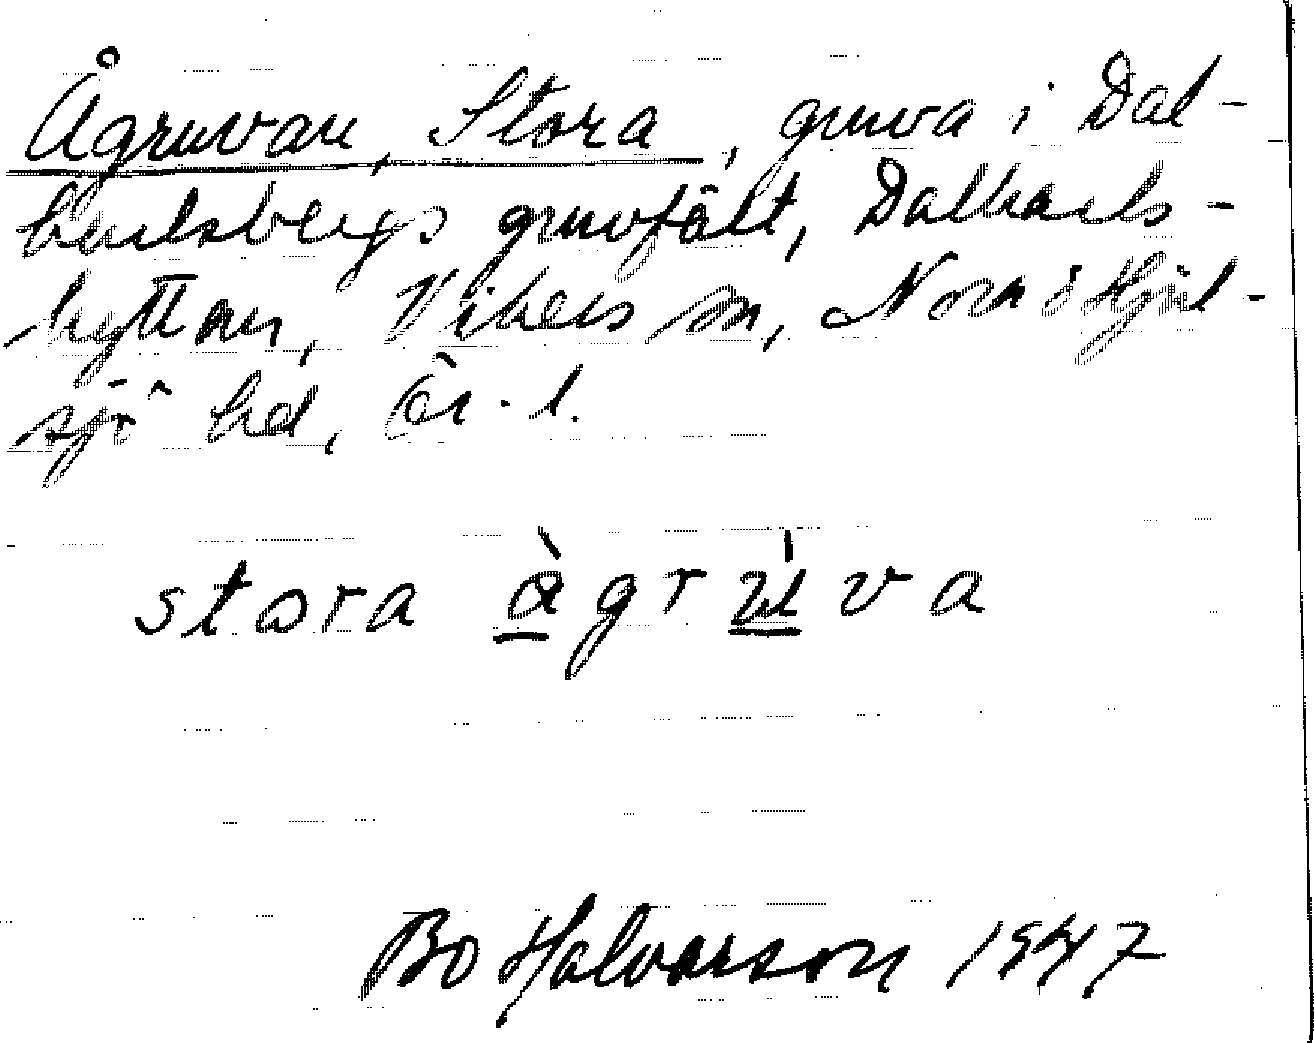 Ågruvan, Stora, gruva i Dal-
karlsbergs gruvfält, Dalkarls-
hyttan, Vikers sn, Nora o Hjul-
sjö hd, Ör. l.
stora àgrúva
Bo Halvarson 1947